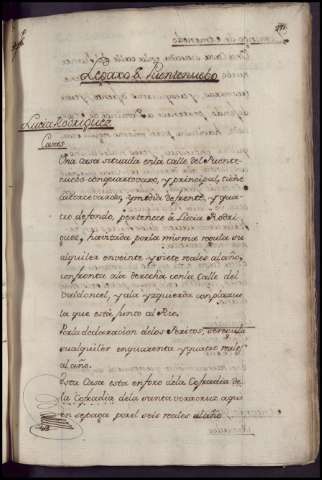 Legaxo 8. Puentenuebo
Lucia Rodriguez
Casas
Una casa situada enla calle del Puente-
nuebo conquartovaxo, y principal, tiene
catorce varas, y media de frente, y qua-
tro defondo, pertenece à Lucia Rodri-
guez, havitada porla misma regula su
alquiler enveinte y siete reales al año,
confronta ala derecha conla Calle del
y ala yzquierda con plazue-
la que està junto al Rio.
Porla declaracion delos Peritos, seregula
sualquiler enquarenta y quatro reales
al año.
Esta Casa esta enforo dela Cofradia de
la Cofradia dela santa veracruz aqui
en sepaga porel seis reales al año